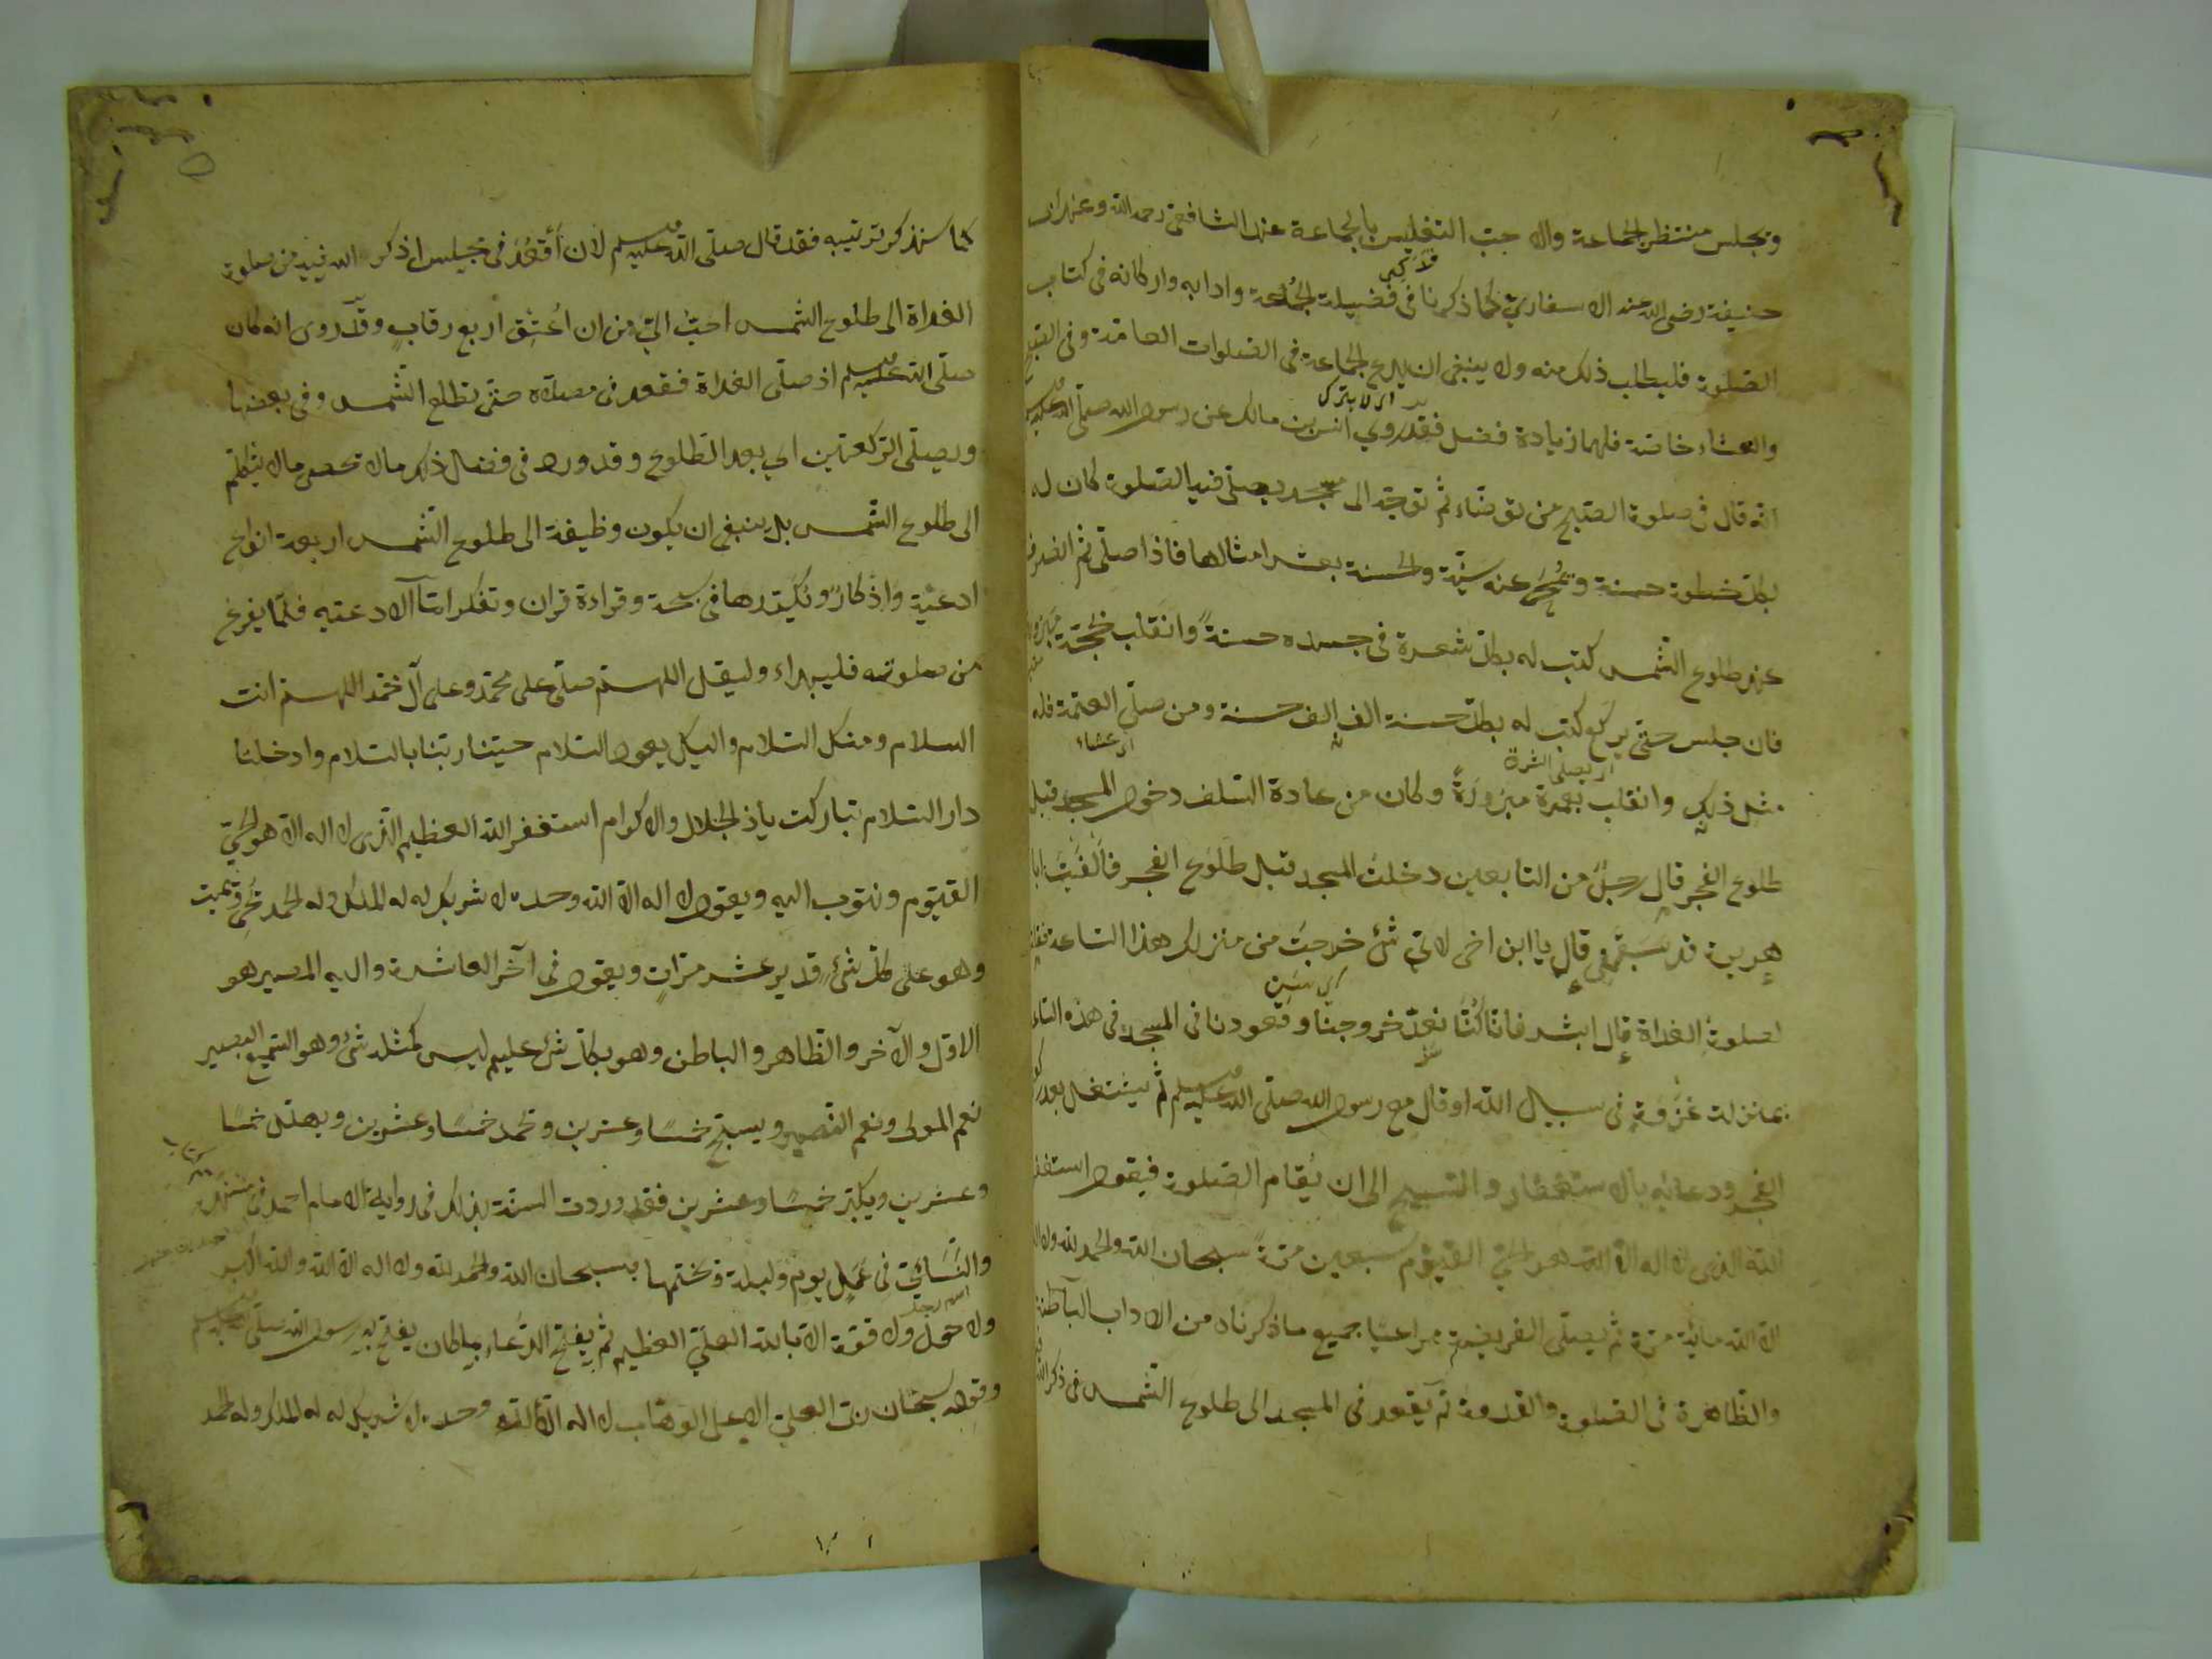 ويجلس منتظر الجماعة والاحب التغليس بالجماعة عند الشافعى رحمه الله وعند ابى
حنيفة رضى الله عنه الاسفار كما ذكرنا فى فضيلة الجماعة وادابه واركانه فى كتاب
الصلوة فليطلب ذلك منه ولا ينبغى ان يدع الجماعة فى الصلوات العامة وفى الصبح
اى لا يترك
والعشاء خاصة فلهما زيادة فضل فقد روي انس بن مالك عن رسول الله صلى الله عليه وسلم
انه قال فى صلوة الصبح من توضاء ثم توجه الى مسجد يصلى فيه الصلوة كان له
بكل خطوة حسنة ويمحى عنه سيئة والحسنة بعشر امثالها فاذا صلى ثم انصرف
عند طلوع الشمس كتب له بكل شعرة فى جسده حسنة وانقلب بحجة مبرورة
فان جلس حتى يركع كتب له بكل حسنة الف الف حسنة ومن صلى العتمة فله
اى عشاء
مثل ذلك وانقلب بعمرة مبرورة وكان من عادة السلف دخول المسجد قبل
طلوع الفجر قال رجل من التابعين دخلت المسجد قبل طلوع الفجر فالفيت ابا
هريرة قد سبقنى قال يا ابن اخى لاي شئ خرجت من منزلك هذا الساعة فقلت
لصلوة الغداة قال ابشر فانا كنا نعد خروجنا وقعودنا فى المسجد فى هذه الساعة
بمنزلة غزوة فى سبيل الله او قال مع رسول الله صلى الله عليه وسلم ثم يشتغل بعد ركعتى
الفجر ودعائه بالاستغفار والتسبيح الى ان يقام الصلوة فيقول استغفر
الله الذى لا اله الا الله هو الحي القيوم سبعين مرة سبحان الله والحمد لله ولا اله
الا الله مائة مرة ثم يصلى الفريضة مراعيا جميع ما ذكرناه من الاداب الباطنة
والظاهرة فى الصلوة والقدوة ثم يقعد فى المسجد الى طلوع الشمس فى ذكر الله
كما سنذكر ترتيبه فقد قال صلى الله عليه وسلم لان أقعد فى مجلس اذكر الله فيه من صلوة
الغداة الى طلوع الشمس احب الي من ان اعتق اربع رقاب وقد روى انه كان
صلى الله عليه وسلم اذ صلى الغداة فقعد فى مصلاه حتى تطلع الشمس وفى بعضها
ويصلى الركعتين اي بعد الطلوع وقد ورد فى فضل ذلك ما لا تحصى ما لا يتكلم
الى طلوع الشمس بل ينبغى ان يكون وظيفة الى طلوع الشمس اربعة انواع
ادعية واذكار ويكررها فى سبحة وقراءة قران وتفكر اما الادعيه فلما يفرغ
من صلوته فليبداء وليقل اللهم صلى على محمد وعلى آل محمد اللهم انت
السلام ومنك السلام واليك يعود السلام حينا ربنا بالسلام وادخلنا
دار السلام تباركت ياذ الجلال والاكرام استغفر الله العظيم الذى لا اله الا هو الحي
القيوم ونتوب اليه ويقول لا اله الا الله وحده لا شريك له له الملك وله الحمد يحى ويميت
وهو على كل شئ قدير عشر مرات ويقول فى آخر العاشرة واليه المصير هو
الاول والآخر والظاهر والباطن وهو بكل شئ عليم ليس كمثله شئ وهو السميع البصير
نعم المولى ونعم النصير ويسبح خمسا وعشرين وتحمد خمسا وعشرين ويهلل خمسا
وعشرين ويكبر خمسا وعشرين فقد وردت السنة بذلك فى رواية الامام احمد فى مسنده
احمد بن حنبل
والنسائي فى عمل يوم وليلة وتختمها بسبحان الله والحمد لله ولا اله الا الله والله اكبر
اسم رجل
ولا حول ولا قوة الا بالله العلي العظيم ثم يفتح الدعاء بما كان يفتح به رسول الله صلى الله عليه وسلم
وقوله سبحان ربى العلي الاعلى الوهاب لا اله الا الله وحده لا شريك له له الملك وله الحمد